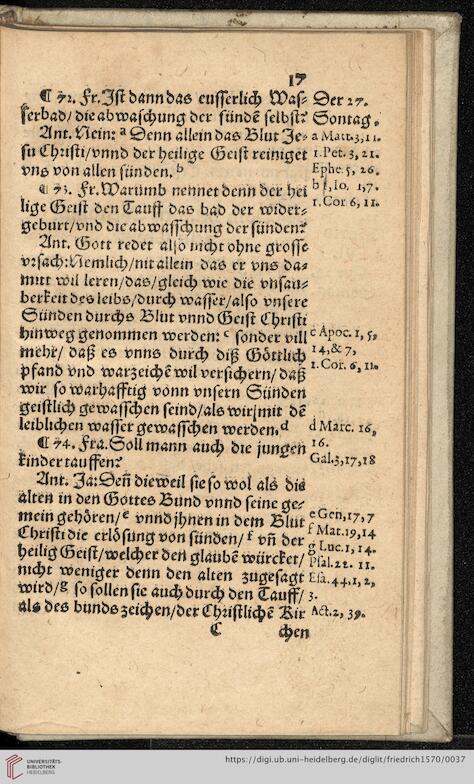 17
¶ 72. Fr. Ist dann das eusserlich Was- Der 27.
serbad / die abwaschung der sündẽ selbst? Sontag.
Ant. Nein: a Denn allein das Blut Je- a Matt. 3, 11.
su Christi / vnnd der heilige Geist reiniget 1. Pet. 3, 21.
vns von allen sünden. b Ephe. 5, 26.
¶ 73. Fr. Warumb nennet denn der hei b 1, Io. 1, 7.
lige Geist den Tauff das bad der wider- 1. Cor 6, 11.
geburt / vnd die abwasschung der sünden?
Ant. Gott redet also nicht ohne grosse
vrsach: Nemlich / nit allein das er vns da-
mitt wil leren / das / gleich wie die vnsau-
berkeit des leibs / durch wasser / also vnsere
Sünden durchs Blut vnnd Geist Christi
hinweg genommen werden: c sonder vill c Apoc. 1, 5,
mehr / daß es vnns durch diß Göttlich 14, & 7,
pfand vnd warzeichẽ wil versichern / daß 1. Cor. 6, 11.
wir so warhafftig vonn vnsern Sünden
geistlich gewasschen seind / als wir mit dẽ
leiblichen wasser gewasschen werden. d d Marc. 16,
¶ 74. Fra. Soll mann auch die jungen 16.
kinder tauffen? Gal. 3, 17, 18
Ant. Ja: Deñ dieweil sie so wol als die
alten in den Gottes Bund vnnd seine ge-
mein gehören / e vnnd jhnen in dem Blut e Gen, 17, 7
Christi die erlösung von sünden / f vñ der f Mat. 19, 14
heilig Geist / welcher den glaubẽ würcket / g Luc. 1, 14.
nicht weniger denn den alten zugesagt Psal. 22. 11.
wird / g so sollen sie auch durch den Tauff / Esa. 44, 1, 2, 3.
als des bunds zeichen / der Christlichẽ Kir Act. 2, 39.
C chen
UNIVERSITÄTS-
BIBLIOTHEK
HEIDELBERG
https://digi.ub.uni-heidelberg.de/diglit/friedrich1570/0037